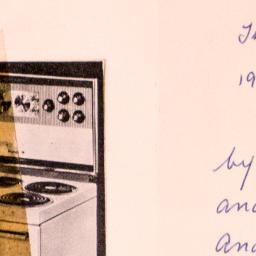 19
by
and
And